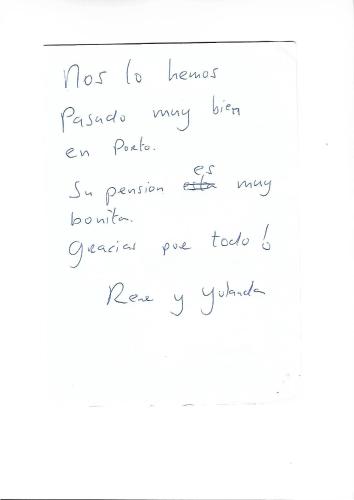 Nos lo hemos
Pasado muy bien
en Porto.
Su pension es muy
bonita.
Gracias por todo!
Rene y Yulanda